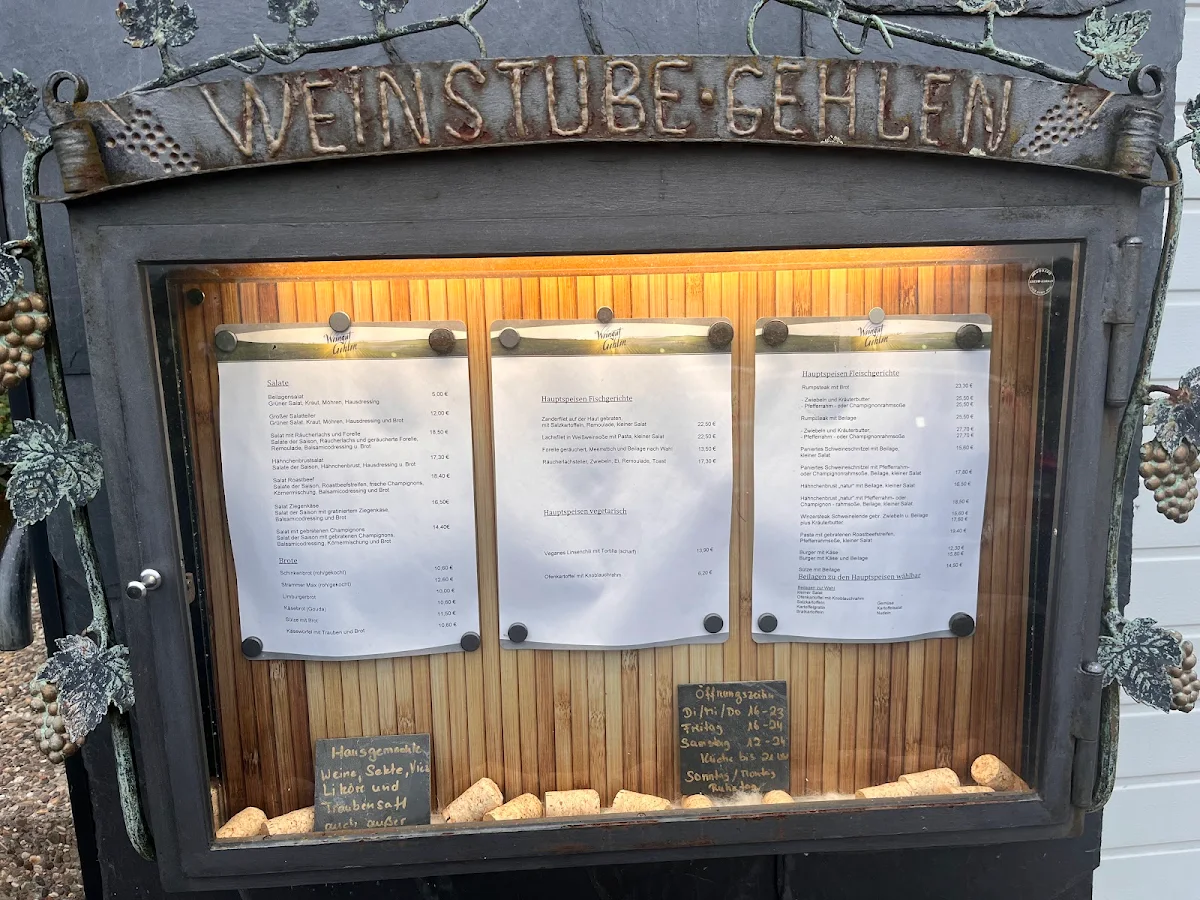 WEINSTUBE · GEHLEN
Weingut
Gehlen
Salate
Beilagensalat 6,00 €
Grüner Salat, Kraut, Möhren, Hausdressing
Großer Salatteller 12,00 €
Grüner Salat, Kraut, Möhren, Hausdressing und Brot
Salat mit Räucherlachs und Forelle 18,50 €
Salate der Saison, Räucherlachs und geräucherte Forelle,
Remoulade, Balsamicodressing u. Brot
Hähnchenbrustsalat 17,30 €
Salate der Saison, Hähnchenbrust, Hausdressing u. Brot
Salat Roastbeef 18,40 €
Salate der Saison, Roastbeefstreifen, frische Champignons,
Körnermischung, Balsamicodressing und Brot
Salat Ziegenkäse 16,50€
Salat der Saison mit gratiniertem Ziegenkäse,
Balsamicodressing und Brot
Salat mit gebratenen Champignons 14,40€
Salate der Saison, gebratene Champignons,
Balsamicodressing, Körnermischung und Brot
Brote
Schinkenbrot (roh/gekocht) 10,60 €
Strammer Max (roh/gekocht) 12,60 €
Limburgerbrot 10,00 €
Käsebrot (Gouda) 10,60 €
Sülze mit Brot 11,50 €
Käsewürfel mit Trauben und Brot 10,60 €
Weingut
Gehlen
Hauptspeisen Fischgerichte
Zanderfilet auf der Haut gebraten
mit Salzkartoffeln, Remoulade, kleiner Salat 22,50 €
Lachsfilet in Weißweinsoße mit Pasta, kleiner Salat 22,50 €
Forelle geräuchert, Meerrettich und Beilage nach Wahl 13,50 €
Räucherlachsteller, Zwiebeln, Ei, Remoulade, Toast 17,30 €
Hauptspeisen vegetarisch
Veganes Linsenchili mit Tortilla (scharf) 13,90 €
Ofenkartoffel mit Knoblauchrahm 8,20 €
Weingut
Gehlen
Hauptspeisen Fleischgerichte
Rumpsteak mit Brot 23,30 €
- Zwiebeln und Kräuterbutter 25,50 €
- Pfefferrahm - oder Champignonrahmsoße 25,50 €
Rumpsteak mit Beilage 25,50 €
- Zwiebeln und Kräuterbutter, 27,70 €
- Pfefferrahm - oder Champignonrahmsoße 27,70 €
Paniertes Schweineschnitzel mit Beilage, 15,60 €
kleiner Salat
Paniertes Schweineschnitzel mit Pfefferrahm-
oder Champignonrahmsoße, Beilage, kleiner Salat 17,80 €
Hähnchenbrust „natur" mit Beilage, kleiner Salat 16,30 €
Hähnchenbrust „natur" mit Pfefferrahm- oder
Champignon - rahmsoße, Beilage, kleiner Salat 18,50 €
Winzersteak Schweinelende gebr. Zwiebeln u. Beilage 15,60 €
plus Kräuterbutter
Pasta mit gebratenen Roastbeefstreifen, 19,40 €
Pfefferrahmsoße, kleiner Salat
Burger mit Käse 12,30 €
Burger mit Käse und Beilage 15,80 €
Sülze mit Beilage 14,50 €
Beilagen zu den Hauptspeisen wählbar
Beilagen zur Wahl
kleiner Salat
Ofenkartoffel mit Knoblauchrahm Gemüse
Salzkartoffeln Kartoffelsalat
Kartoffelgratin Nudeln
Bratkartoffeln
Hausgemachte
Weine, Sekte,
Liköre und
Traubensaft
auch außer
Öffnungszeiten
Di/Mi/Do 16-23
Freitag 16-24
Samstag 12-24
Küche bis 21 Uhr
Sonntag/Montag
Ruhetag